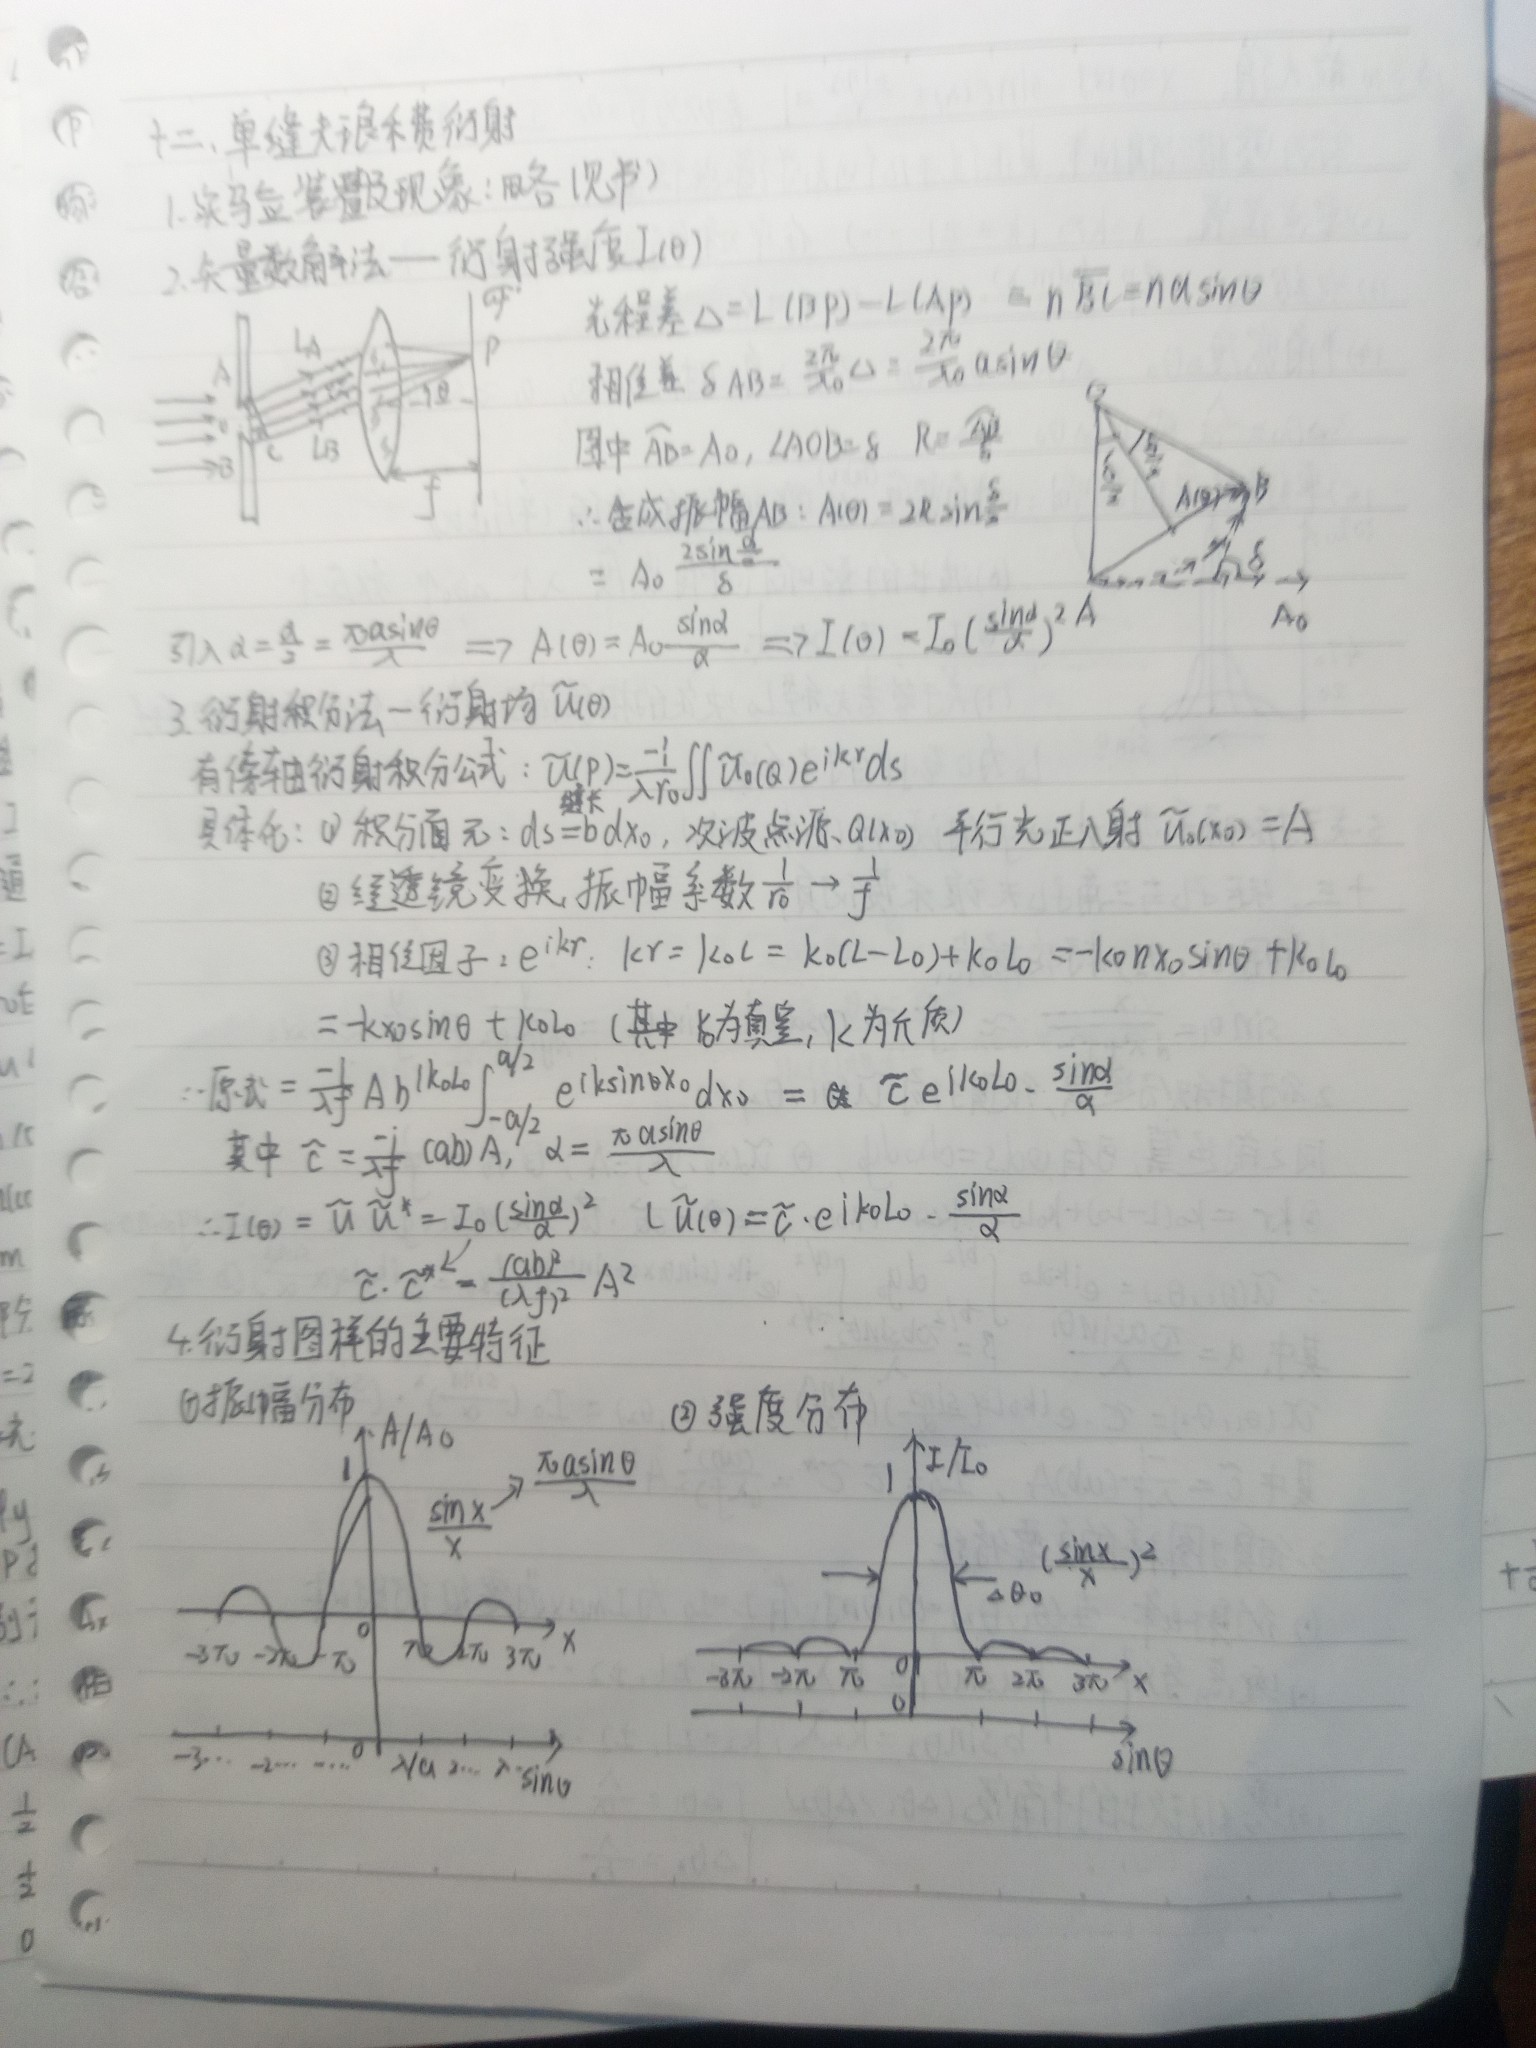 十二、单缝夫琅禾费衍射
1.实验装置及现象:略(见书)
2.矢量数解法一衍射强度I(θ)
光程差Δ=L(BP)-L(AP) = nBC=nasinθ
相位差 δAB=2π/λ0 Δ=2π/λ0 asinθ
图中 AB=A0, ∠AOB=δ R=AB/δ
∴合成振幅AB:A(θ)=2Rsin δ/2
= A0 2sin δ/2 / δ
A
B
C
LA
LB
θ
P
f
A(θ)
B
δ
A
A0
引入α=δ/2=πasinθ/λ ⇒ A(θ)=A0 sinα/α ⇒ I(θ)=I0(sinα/α)²
3.衍射积分法一衍射场 ũ(θ)
有傍轴衍射积分公式:ũ(P)=-i/λr0 ∬ũ0(Q)e^ikr ds
缝长
具体化:① 积分面元:ds=bdx0, 次波点源、Q(x0) 平行光正入射 ũ0(x0)=A
② 经透镜变换,振幅系数 1/r0→1/f
③相位因子:e^ikr: kr=k0L=k0(L-L0)+k0L0=-k0nx0sinθ+k0L0
=-kx0sinθ+k0L0 (其中k0为真空,k为介质)
∴原式=-i/λf Ab^ik0L0 ∫_-a/2^a/2 e^iksinθx0 dx0 = c̃ e^ik0L0 · sinα/α
其中 c̃=-i/λf (ab)A, α=πasinθ/λ
∴I(θ)=ũũ*=I0(sinα/α)² (ũ(θ)=c̃·e^ik0L0·sinα/α
c̃·c̃*=(ab)²/(λf)² A²
4.衍射图样的主要特征
①振幅分布 ②强度分布
A/A0
1
sinx/x → πasinθ/λ
-3π -2π -π 0 π 2π 3π x
-3... -2... -... 0 λ/a 2... sinθ
I/I0
1
(sinx/x)²
Δθ0
-3π -2π π 0 π 2π 3π x
0
sinθ